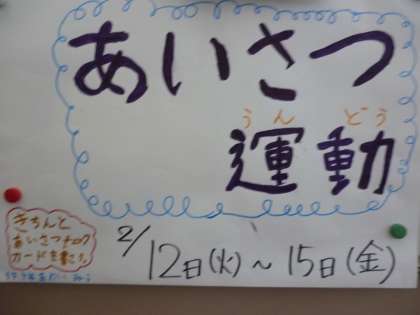 あいさつ
うんどう
運動
きちんと
あいさつチェック
カードを書こう。
2/12日(火)~15日(金)